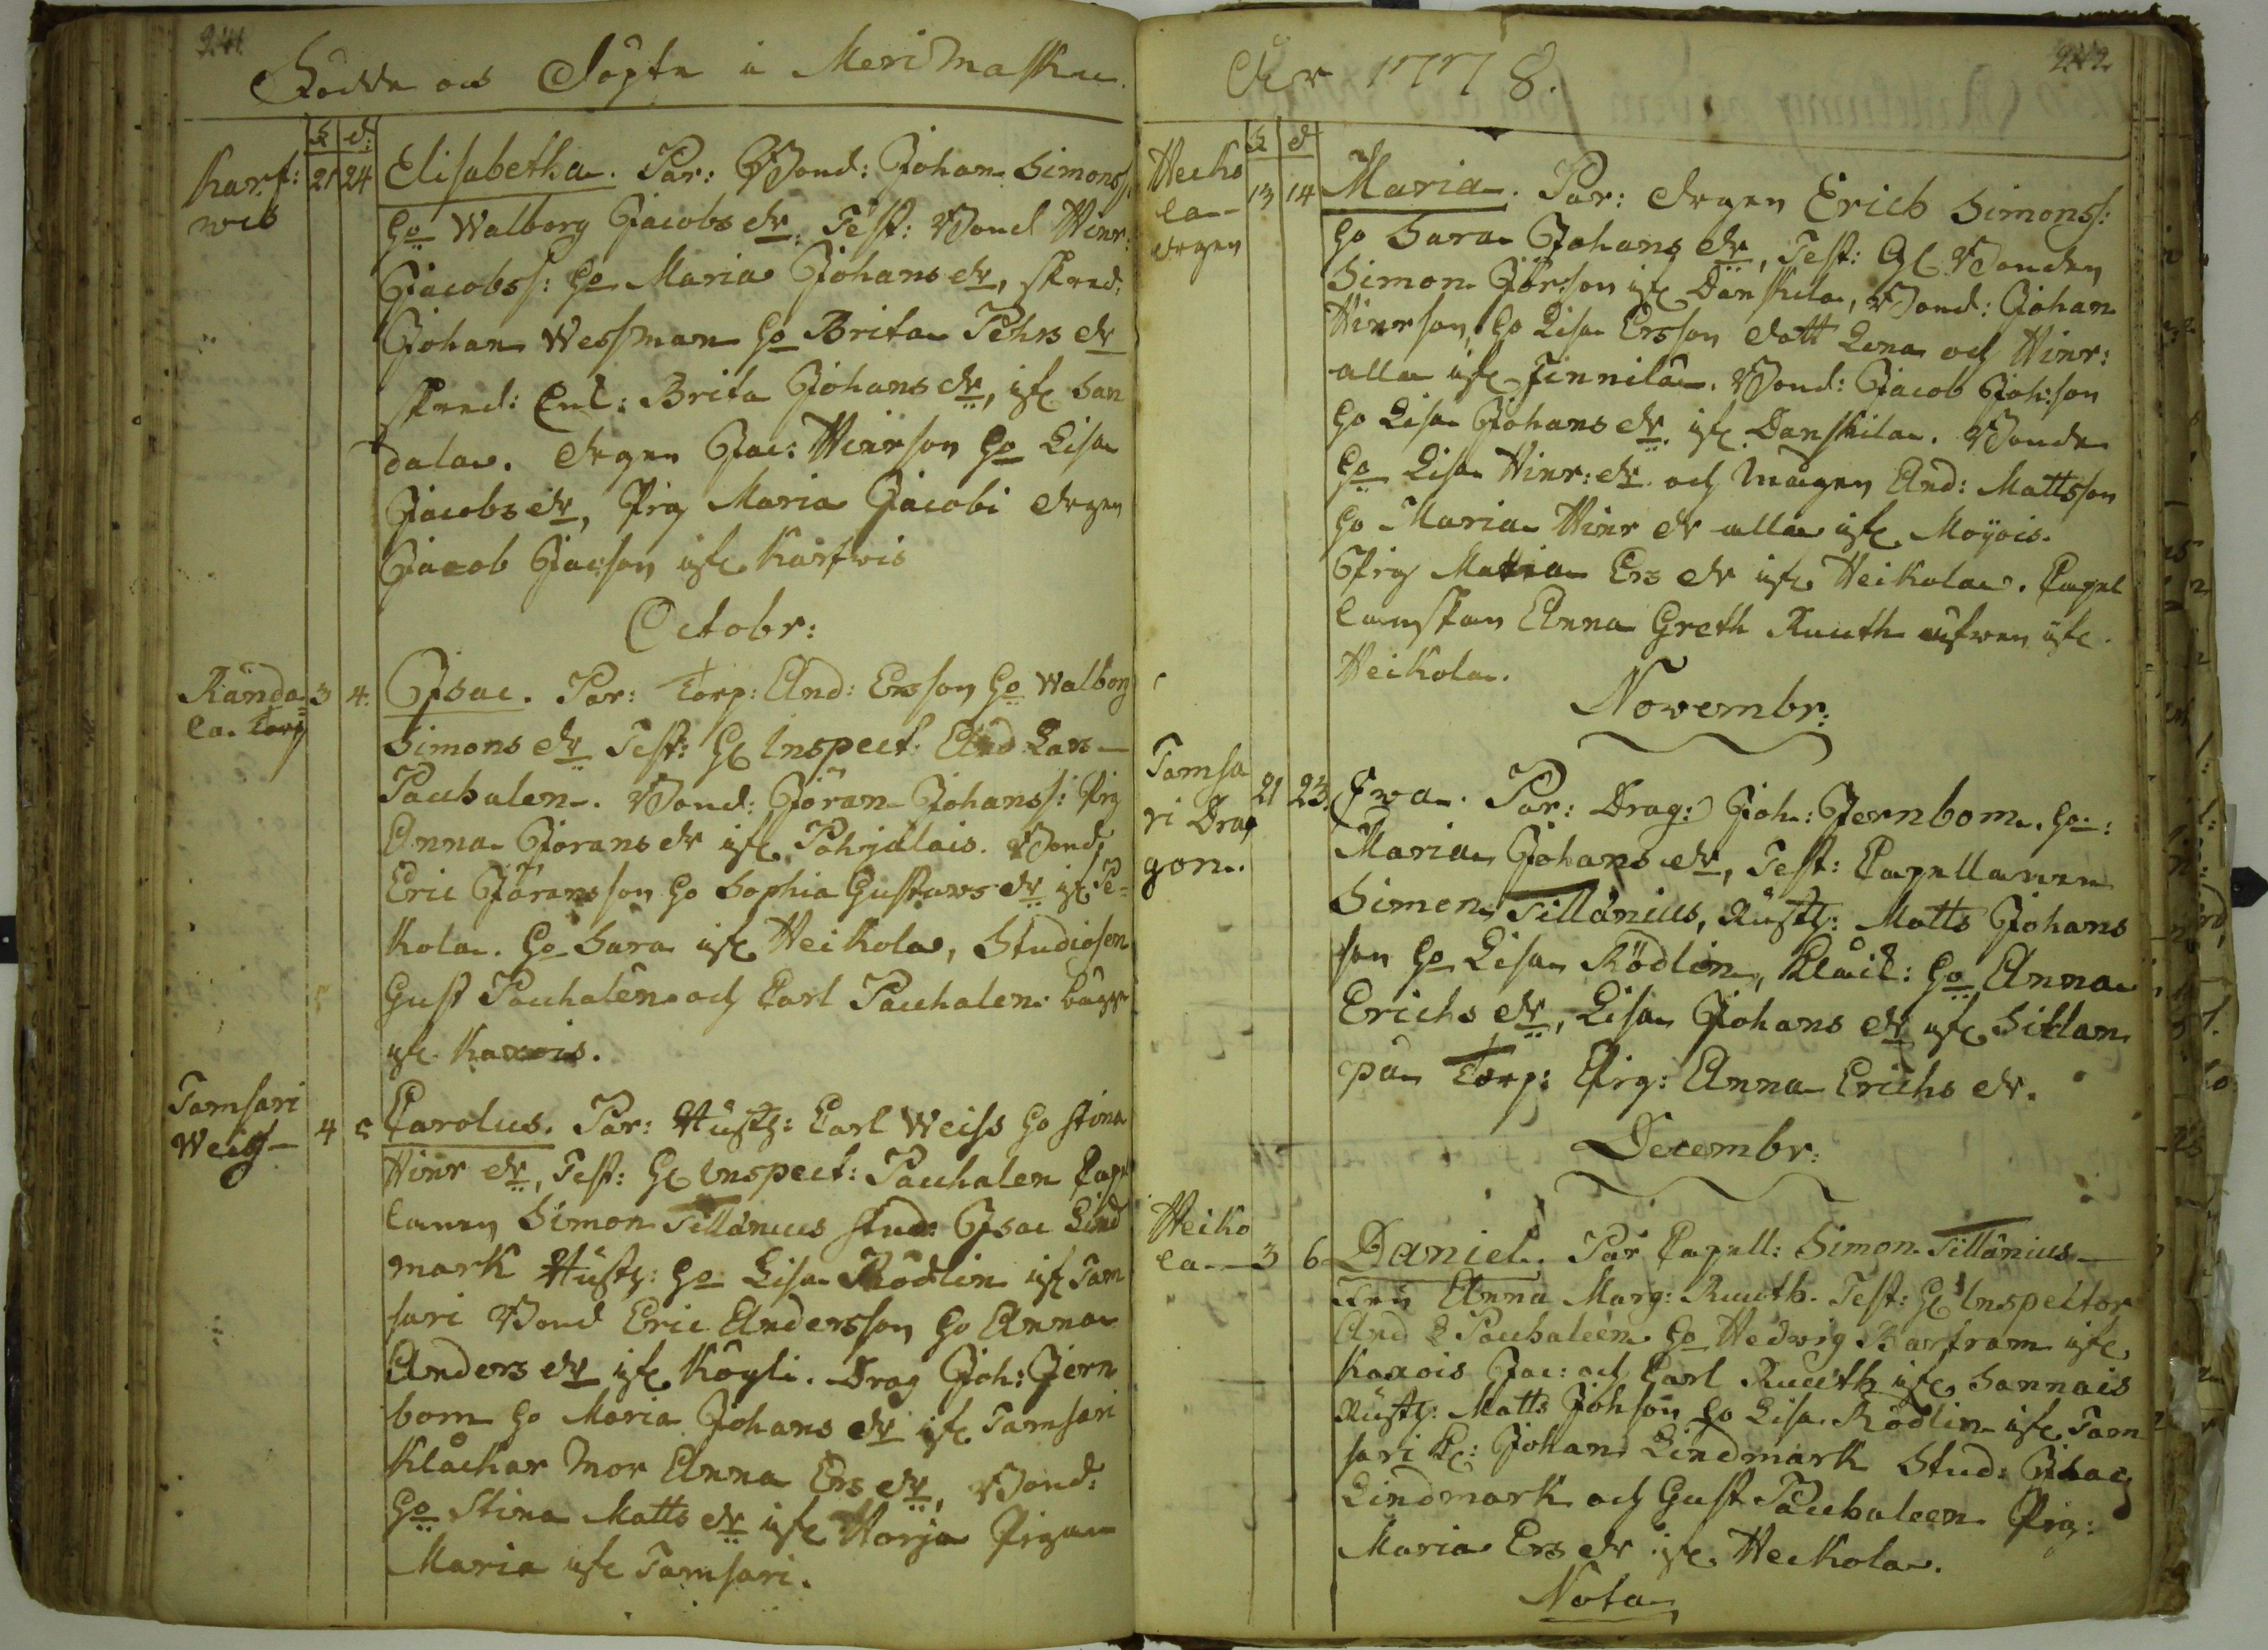 241
Födde och Döpte i Merimasku.
F. d:
Karf: 21 24 Elisabetha. Par: Bond: Johan Simonss:
wis
Ho Walborg Jacobs dr. Test: Bond Hinr:
Jacobss: Ho Maria Johans dr, skred:
Johan Wessman Ho Brita Pehrs dr
skred: Enk: Brita Johans dr, ifr. San
dala. drgen Jac: Hinrson Ho Lisa
Jacobs dr, Pig Maria Jacobi drgen
Jacob Jacson ifr. Karfwis
Octobr:
Randa 3 4. Isac. Par: Torp: And: Ersson Ho Walborg
la. Torp
Simons dr Test: H Inspect. And Lars
Pacchalen. Bond: Jöran Johanss: Pig
Anna Görans dr ifr. Pohjalais. Bond:
Eric Göransson Ho Sophia Gustavs dr if. Pe-
kola. Ho Sara ifr Heikola, Studiosen
Gust Pacchalen och Carl Pacchalen
ifr Kaxois.
Tamsari 4 5 Carolus. Par: Rustg: Carl Weiss Ho Stina
Weis
Hinr dr, Test: H Inspect: Pacchalen Capel
lanen Simon Tillanius stud: Isac Lind
mark Rustg: Ho Lisa Rödlin ifr Tam
sari Bond Eric Andersson Ho Anna
Anders dr ifr Köyli. Drag Joh: Jern
bom Ho Maria Johans dr ifr Tamsari
Klåckar mor Anna Ers dr, Bond:
Ho Stina Matts dr ifr Horja Pigan
Maria ifr Tamsari.
242
År 1778.
F d
Heiko 13 14 Maria. Par: drgen Erich Simonss:
la
drgen
Ho Sara Johans dr, Test: Gl Bonden
Simon Jörson ifr Danskila, Bond: Johan
Hinrson, Ho Lisa Ersson dott Lena och Hinr:
alla ifr Finnila. Bond: Jacob Johson
Ho Lisa Johans dr. ifr. Danskila. Bonde
Ho Lisa Hinr: dr. och mågen And: Mattsson
Ho Maria Hinr dr alla ifr. Moyois.
Pig Maria Ers dr ifr Heikola. Capel
lanskan Anna Greth Ruuth ifr.
Heikola.
Novembr:
Tamsa 21 23. Ewa. Par: Drag: Joh: Jernbom. Ho:
ri Dra
gon.
Maria Johans dr, Test: Capellanen
Simon Tillänius, Rustg: Matts Johans
son Ho Lisa Rödlin, Klåck: Ho Anna
Erichs dr, Lisa Johans dr ifr Sillan
pä Torp: Pig: Anna Erichs dr.
Decembr:
Heiko
la 3 6 Daniel. Par Capell: Simon Tillänius
Fru Anna Marg: Ruuth. Test: H Inspector
And L Pacchaleen Ho Hedwig Bartram ifr.
Kaxois Jac: och Carl Ruuth ifr Sannais
Rustg: Matts Johson Ho Lisa Rödlin ifr Tam
sari Kl: Johan Lindmark Stud: Isac
Lindmark och Gust Pacchaleen Pig:
Maria Ers dr ifr. Heikola.
Nota